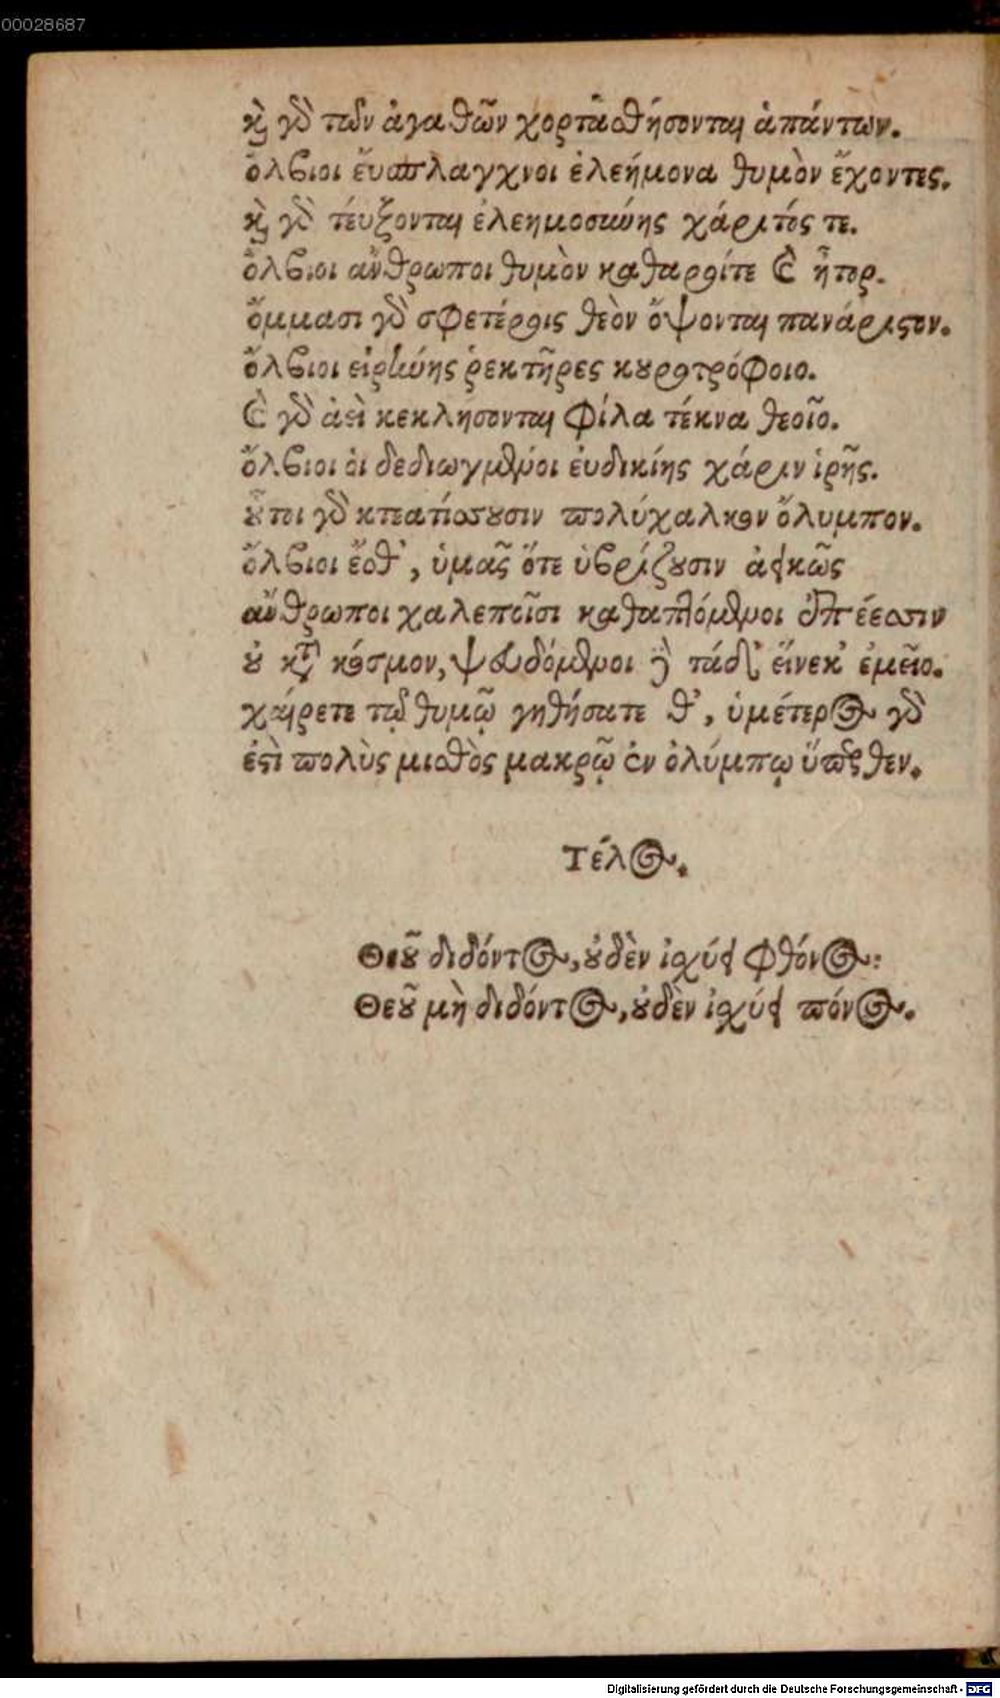 00028687
καὶ γὰρ τῶν ἀγαθῶν χορταθήσονται ἁπάντων.
ὄλβιοι ἔυσπλαγχνοι ἐλεήμονα θυμὸν ἔχοντες.
καὶ γὰρ τέυξονται ἐλεημοσύνης χάριτός τε.
ὄλβιοι ἄνθρωποι θυμὸν καθαροίτε καὶ ἦτορ.
ὄμμασι γὰρ σφετέροις θεὸν ὄψονται πανάριστον.
ὄλβιοι εἰρήνης ῥεκτῆρες κουροτρόφοιο.
καὶ γὰρ ἀεὶ κεκλήσονται φίλα τέκνα θεοῖο.
ὄλβιοι οἱ δεδιωγμένοι ἐυδικίης χάριν ἱρῆς.
οὗτοι γὰρ κτεατίσουσιν πολύχαλκον ὄλυμπον.
ὄλβιοι ἔσθ', ὑμᾶς ὅτε ὑβρίζουσιν ἀεικῶς
ἄνθρωποι χαλεποῖσι καθαπτόμενοι ἐπέεσσιν
οὐ κατὰ κόσμον, ψευδόμενοι τάδ' εἵνεκ' ἐμεῖο.
χαίρετε τῷ θυμῷ γηθήσατε θ', ὑμέτερος γὰρ
ἐστὶ πολὺς μισθὸς μακρῷ ἐν ὀλύμπῳ ὕπερθεν.
Τέλος.
Θεοῦ διδόντος, οὐδὲν ἰσχύει φθόνος:
Θεοῦ μὴ διδόντος, οὐδὲν ἰσχύει πόνος.
Digitalisierung gefördert durch die Deutsche Forschungsgemeinschaft - DFG